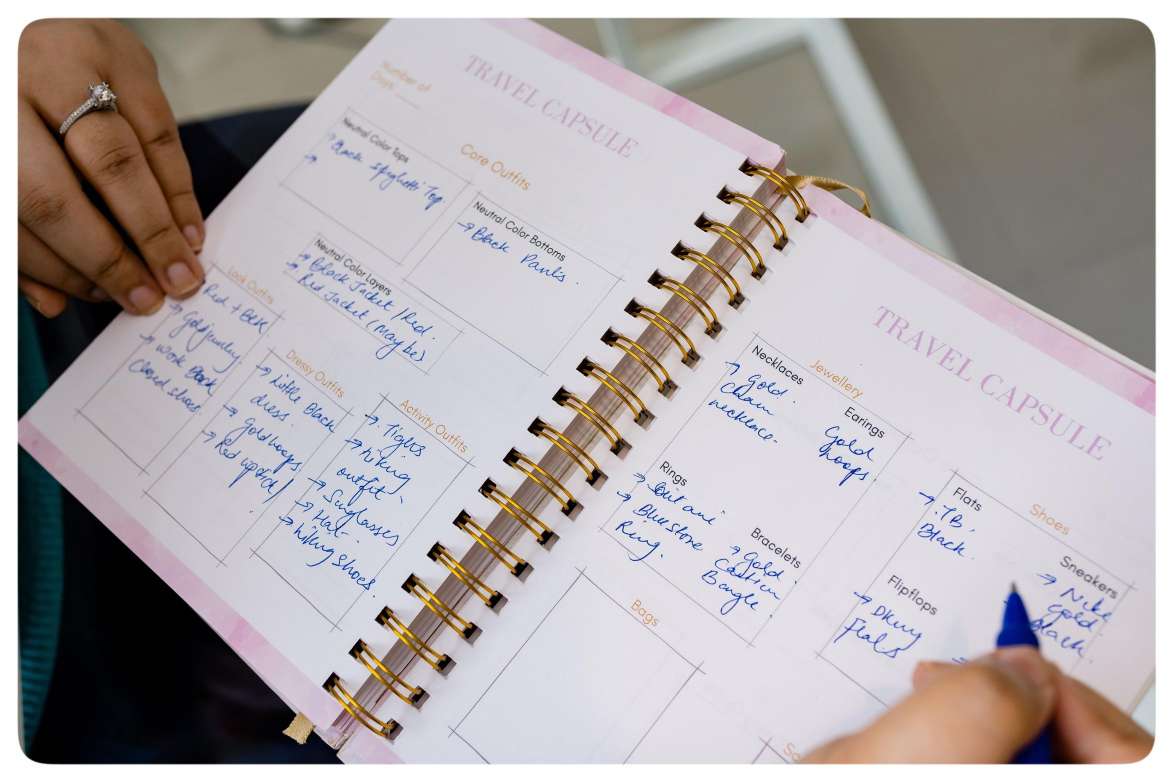 TRAVEL CAPSULE
Number of
Days
Core Outfits
Neutral Color Tops
→ Black Spaghetti Top
→
Neutral Color Bottoms
→ Black Pants.
Neutral Color Layers
→ Black Jacket / Red.
→ Red Jacket (Maybe)
Look Outfits
Red + Blk.
→ Gold jewelry.
→ Work Book
Closed shoes
Dressy Outfits
→ Little Black
dress.
→ Gold hoops
→ Red lipstick
Activity Outfits
→ Tigers
→ hiking
outfit
→ Sunglasses
→ Hat
→ hiking shoes.
TRAVEL CAPSULE
Jewellery
Necklaces
→ Gold.
Chain
necklace
Earings
Gold
hoops.
Rings
→
→ Blue stone
Ring.
Bracelets
→ Gold.
Bangle
Shoes
Flats
→ TB,
Black.
Sneakers
→ Nike
Gold
Black.
Flipflops
→ DKNY
Flats
Bags